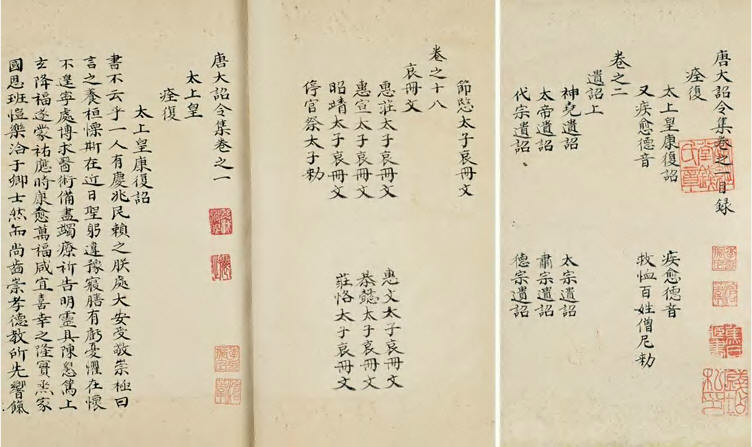 唐大詔令集卷之一目録
痊復
太上皇康復詔　疾愈德音
又疾愈德音　救恤百姓僧尼勅
卷之二
遺詔上
神堯遺詔　太宗遺詔
太帝遺詔　肅宗遺詔
代宗遺詔　德宗遺詔
節愍太子哀冊文
卷之十八
哀冊文
惠莊太子哀冊文　惠文太子哀冊文
惠宣太子哀冊文　恭懿太子哀冊文
昭靖太子哀冊文　莊恪太子哀冊文
停官祭太子勅
唐大詔令集卷之一
太上皇
痊復
太上皇康復詔
書不云乎一人有慶兆民賴之朕處大安受敬崇極曰
言之養桓慄斯在近日聖躬違豫寢膳有虧憂懼在懷
不遑寧處博求醫術備盡蠲療祈告明靈具陳懇篤上
玄降福遂蒙祐應時康愈萬福咸宜喜幸之隆實家
國恩班愷樂洽于卿士然而尚齒崇孝德教所先饗餼